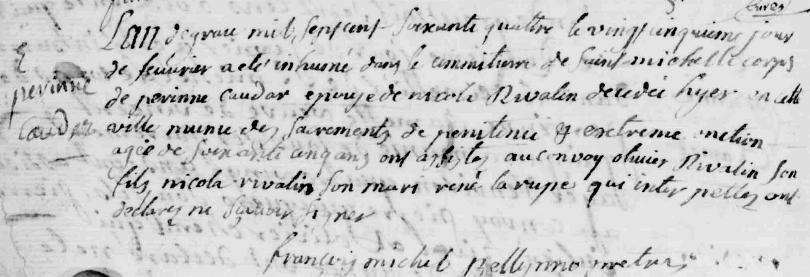 Lan de grace mil sept cent soixante quattre le vingt cinquieme jour
de feuvrier a eté inhumé dans le cimmitierre de saint michelle corps
perinne
de perinne caudar epouse de nicole Rivalin decedée hyer en cette
caudar
ville munie des sacrements de penitence & extreme onction
agée de soixante cinq ans ont assistes au convoy olivier Rivalin son
fils nicola rivalin son mari rené larupe qui interpellez ont
declarez ne sçavoir signer
francois michel